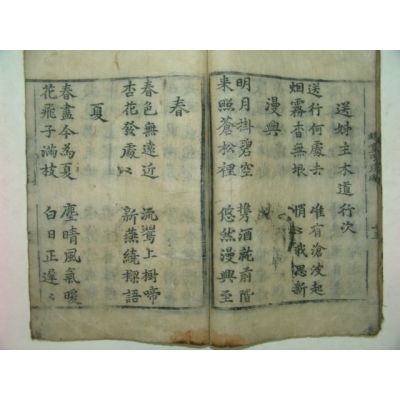 送姊主水道行次
送行何處去 唯有滄波起
烟霧杳無垠 悄悄我思新
漫興
明月掛碧空 携酒花前階
來照蒼松裡 悠然漫興至
春
春色無遠近 流鶯上樹啼
杏花發處處 新燕繞樑語
夏
春盡今為夏 塵晴風氣暖
花飛子滿枝 白日正遲遲